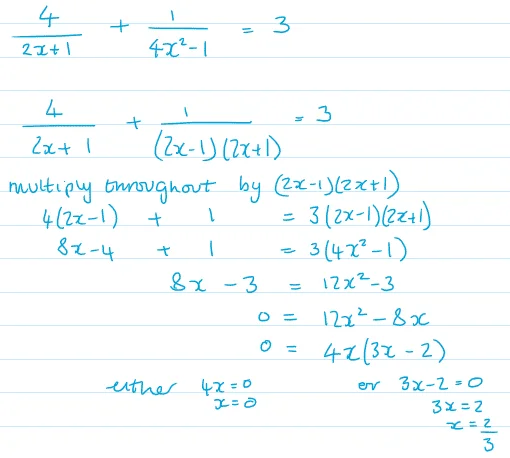 4/(2x+1) + 1/(4x²-1) = 3
4/(2x+1) + 1/((2x-1)(2x+1)) = 3
multiply throughout by (2x-1)(2x+1)
4(2x-1) + 1 = 3(2x-1)(2x+1)
8x-4 + 1 = 3(4x²-1)
8x - 3 = 12x²-3
0 = 12x² - 8x
0 = 4x(3x - 2)
either 4x=0 or 3x-2=0
x=0 3x=2
x=2/3